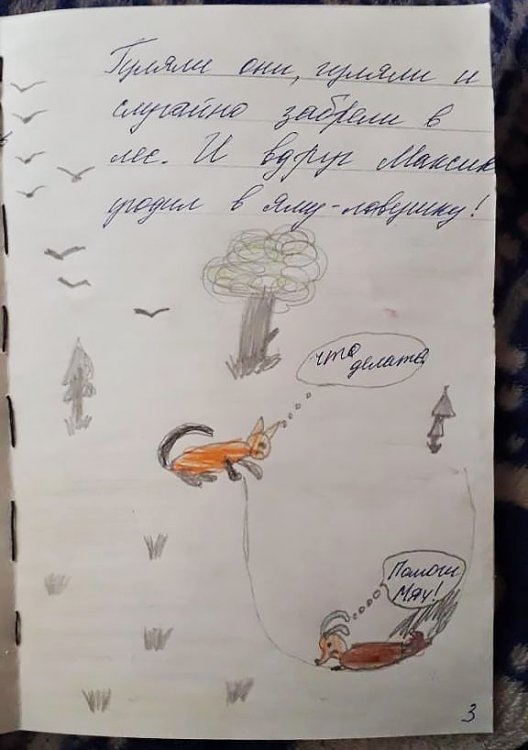 Гуляли они, гуляли и
случайно забрели в
лес. И вдруг Максик
угодил в яму-ловушку!
что
делать
Помоги
Мяу!
3